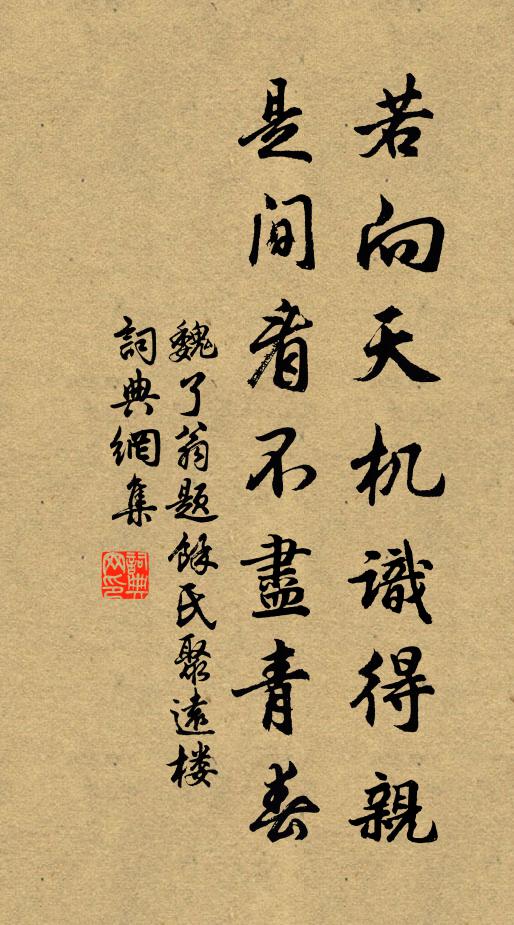 若向天机識得親
是间看不盡青春
魏了翁題餘氏聚遠楼
詞典網集
詞典
网印